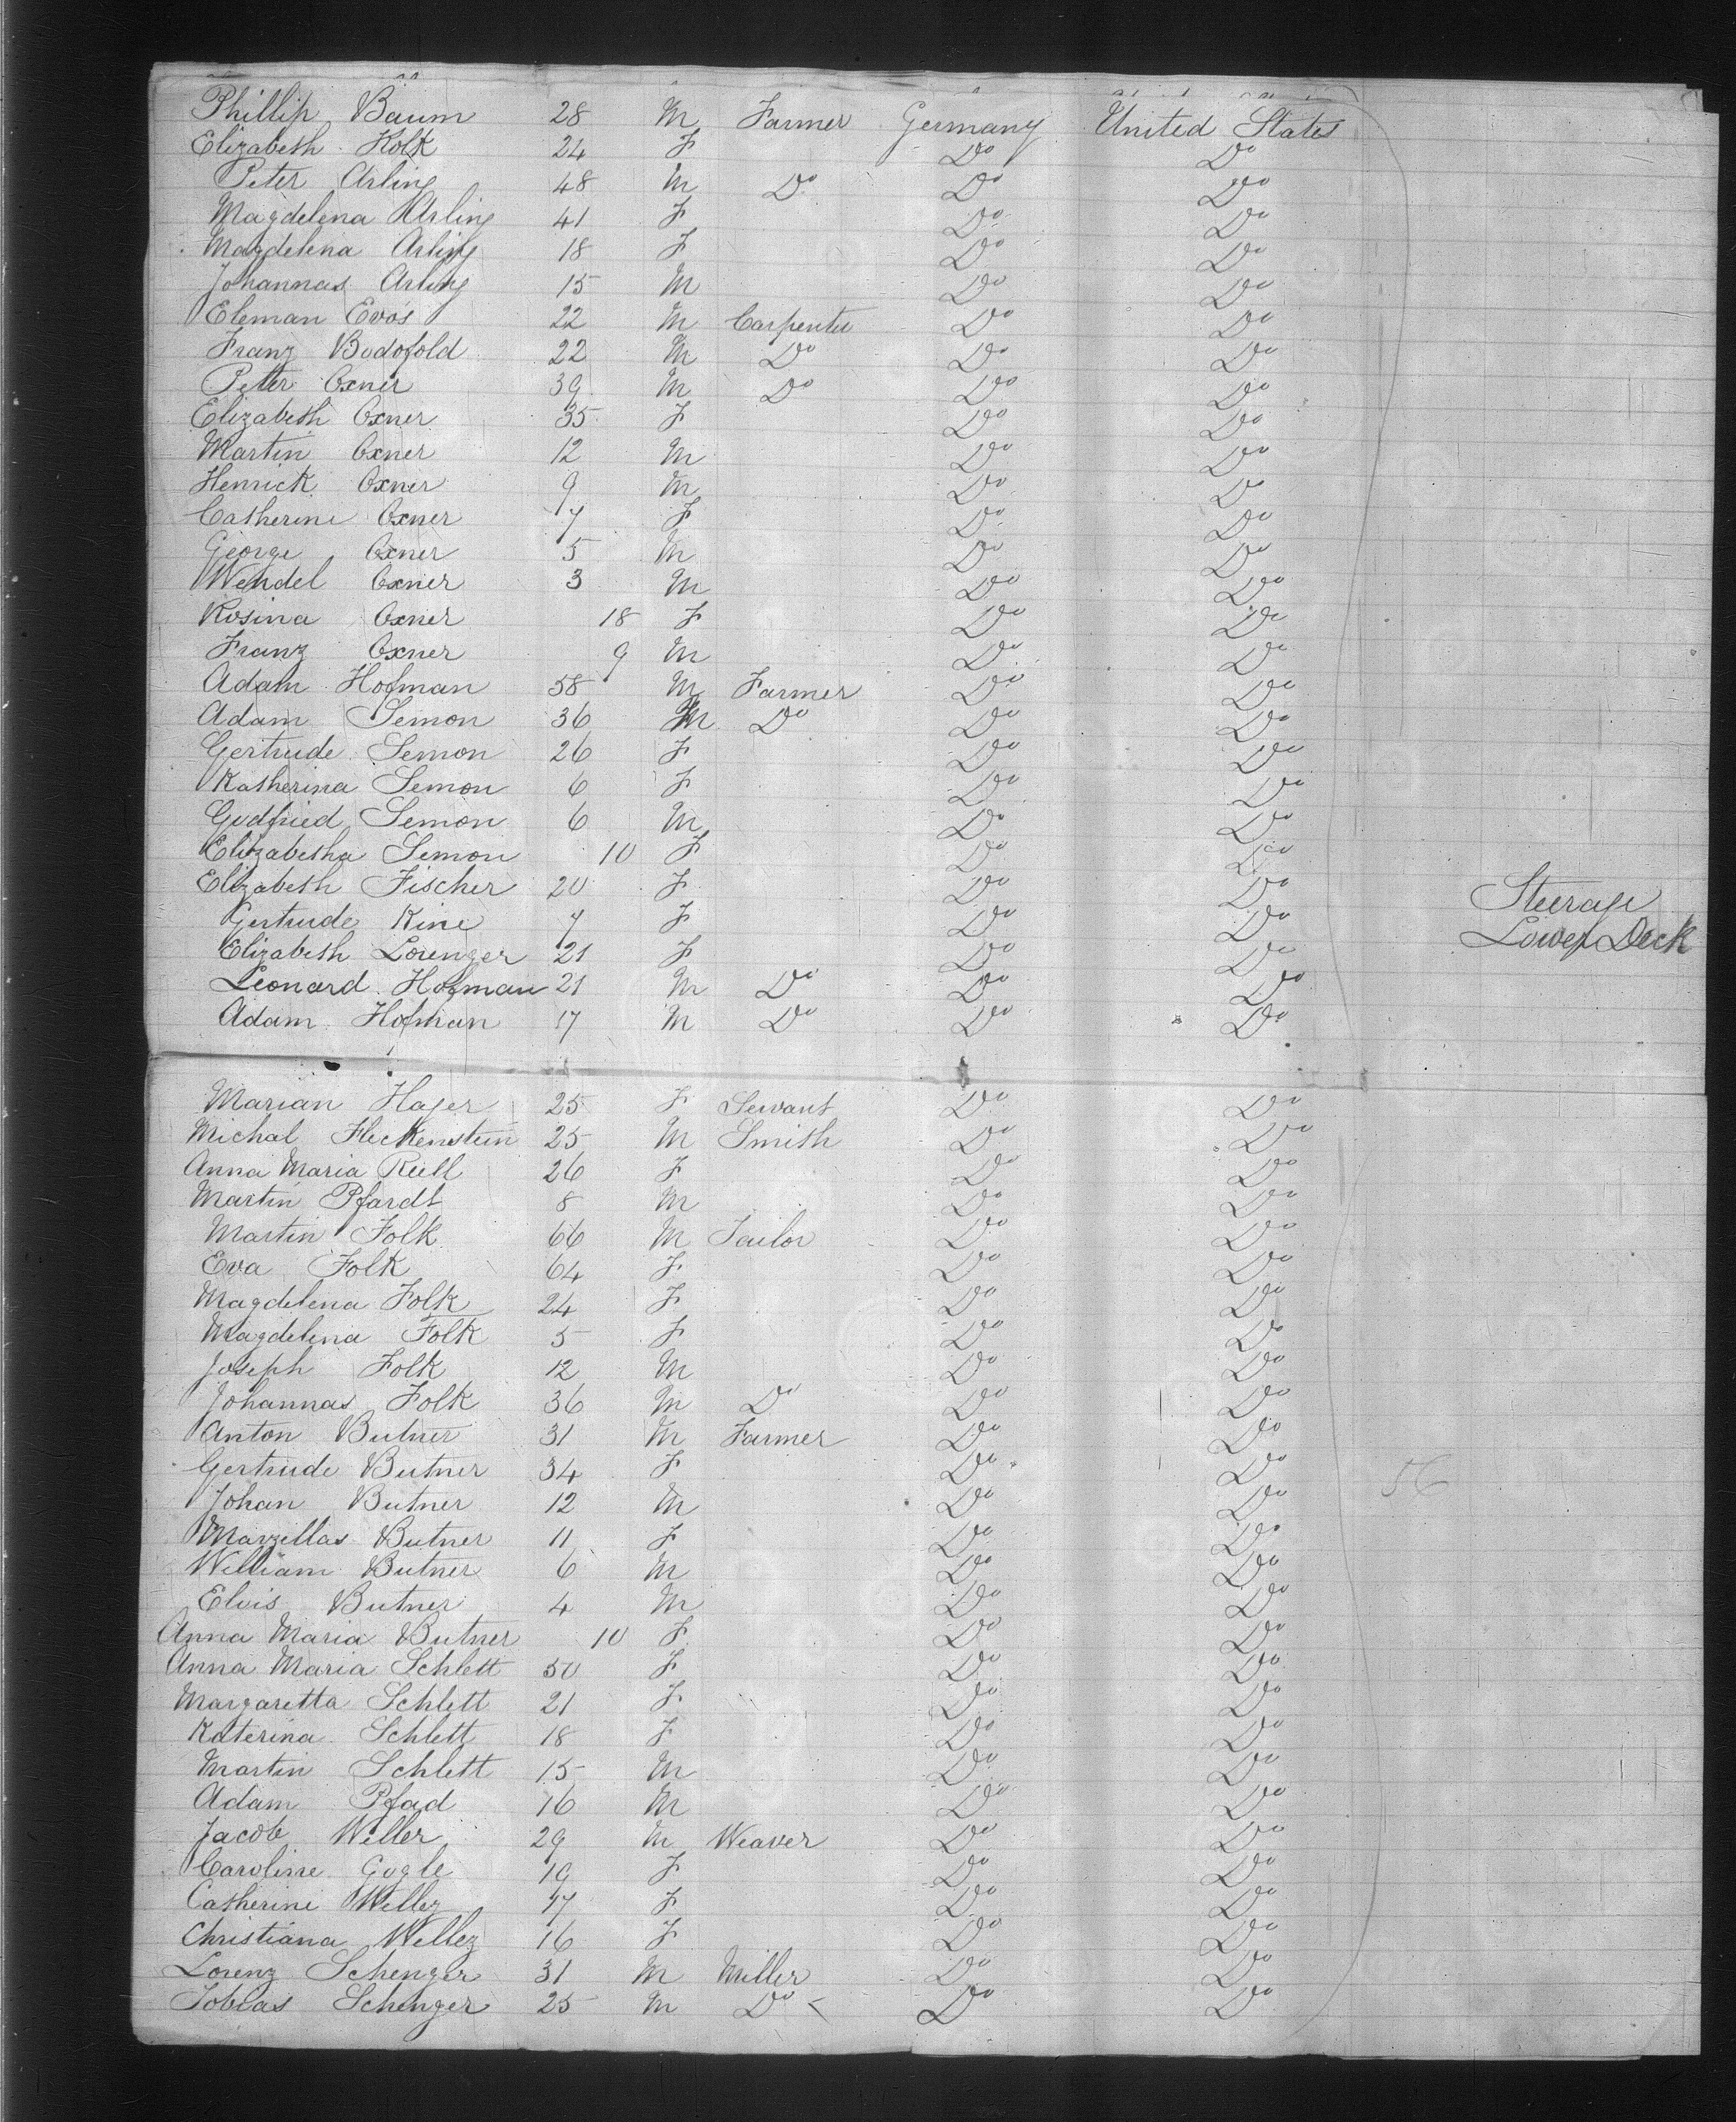 Phillip Baum 28 M Farmer Germany United States
Elizabeth Kolk 24 F Do Do
Peter Arling 48 M Do Do Do
Magdelena Arling 41 F Do Do
Magdelena Arling 18 F Do Do
Johannas Arling 15 M Do Do
Eleman Evos 22 M Carpenter Do Do
Franz Bodofold 22 M Do Do Do
Peter Oxner 39 M Do Do Do
Elizabeth Oxner 35 F Do Do
Martin Oxner 12 M Do Do
Henrick Oxner 9 M Do D
Catherine Oxner 7 F Do Do
George Oxner 5 M Do Do
Wendel Oxner 3 M Do Do
Rosina Oxner 18 F Do Do
Franz Oxner 9 M Do Do
Adam Hofman 58 M Farmer Do Do
Adam Semon 36 M Do Do Do
Gertrude Semon 26 F Do Do
Katherina Semon 6 F Do Do
Godfried Semon 6 M Do Do
Elizabetha Semon 10 F Do Do
Elizabeth Fischer 20 F Do Do
Steerage
Gertrude Kine 7 F Do Do
Lower Deck
Elizabeth Lorenzer 21 F Do Do
Leonard Hofman 21 M Do Do Do
Adam Hofman 17 M Do Do Do
Marian Hager 25 F Servant Do Do
Michal Fleckenstein 25 M Smith Do Do
Anna Maria Reill 26 F Do Do
Martin Pfardt 8 M Do Do
Martin Folk 66 M Tailor Do Do
Eva Folk 64 F Do Do
Magdelena Folk 24 F Do Do
Magdelina Folk 5 F Do Do
Joseph Folk 12 M Do Do
Johannas Folk 36 M Do Do Do
Anton Butner 31 M Farmer Do Do
Gertrude Butner 34 F Do Do
56
Johan Butner 12 M Do Do
Marzillas Butner 11 F Do Do
William Butner 6 M Do Do
Elvis Butner 4 M Do Do
Anna Maria Butner 10 F Do Do
Anna Maria Schlett 50 F Do Do
Margaretta Schlett 21 F Do Do
Katerina Schlett 18 F Do Do
Martin Schlett 15 M Do Do
Adam Pfad 16 M Do Do
Jacob Weller 29 M Weaver Do Do
Caroline Gogle 19 F Do Do
Catherine Wellez 17 F Do Do
Christiana Wellez 16 F Do Do
Lorenz Schenger 31 M Miller Do Do
Tobias Schenger 25 M Do Do Do